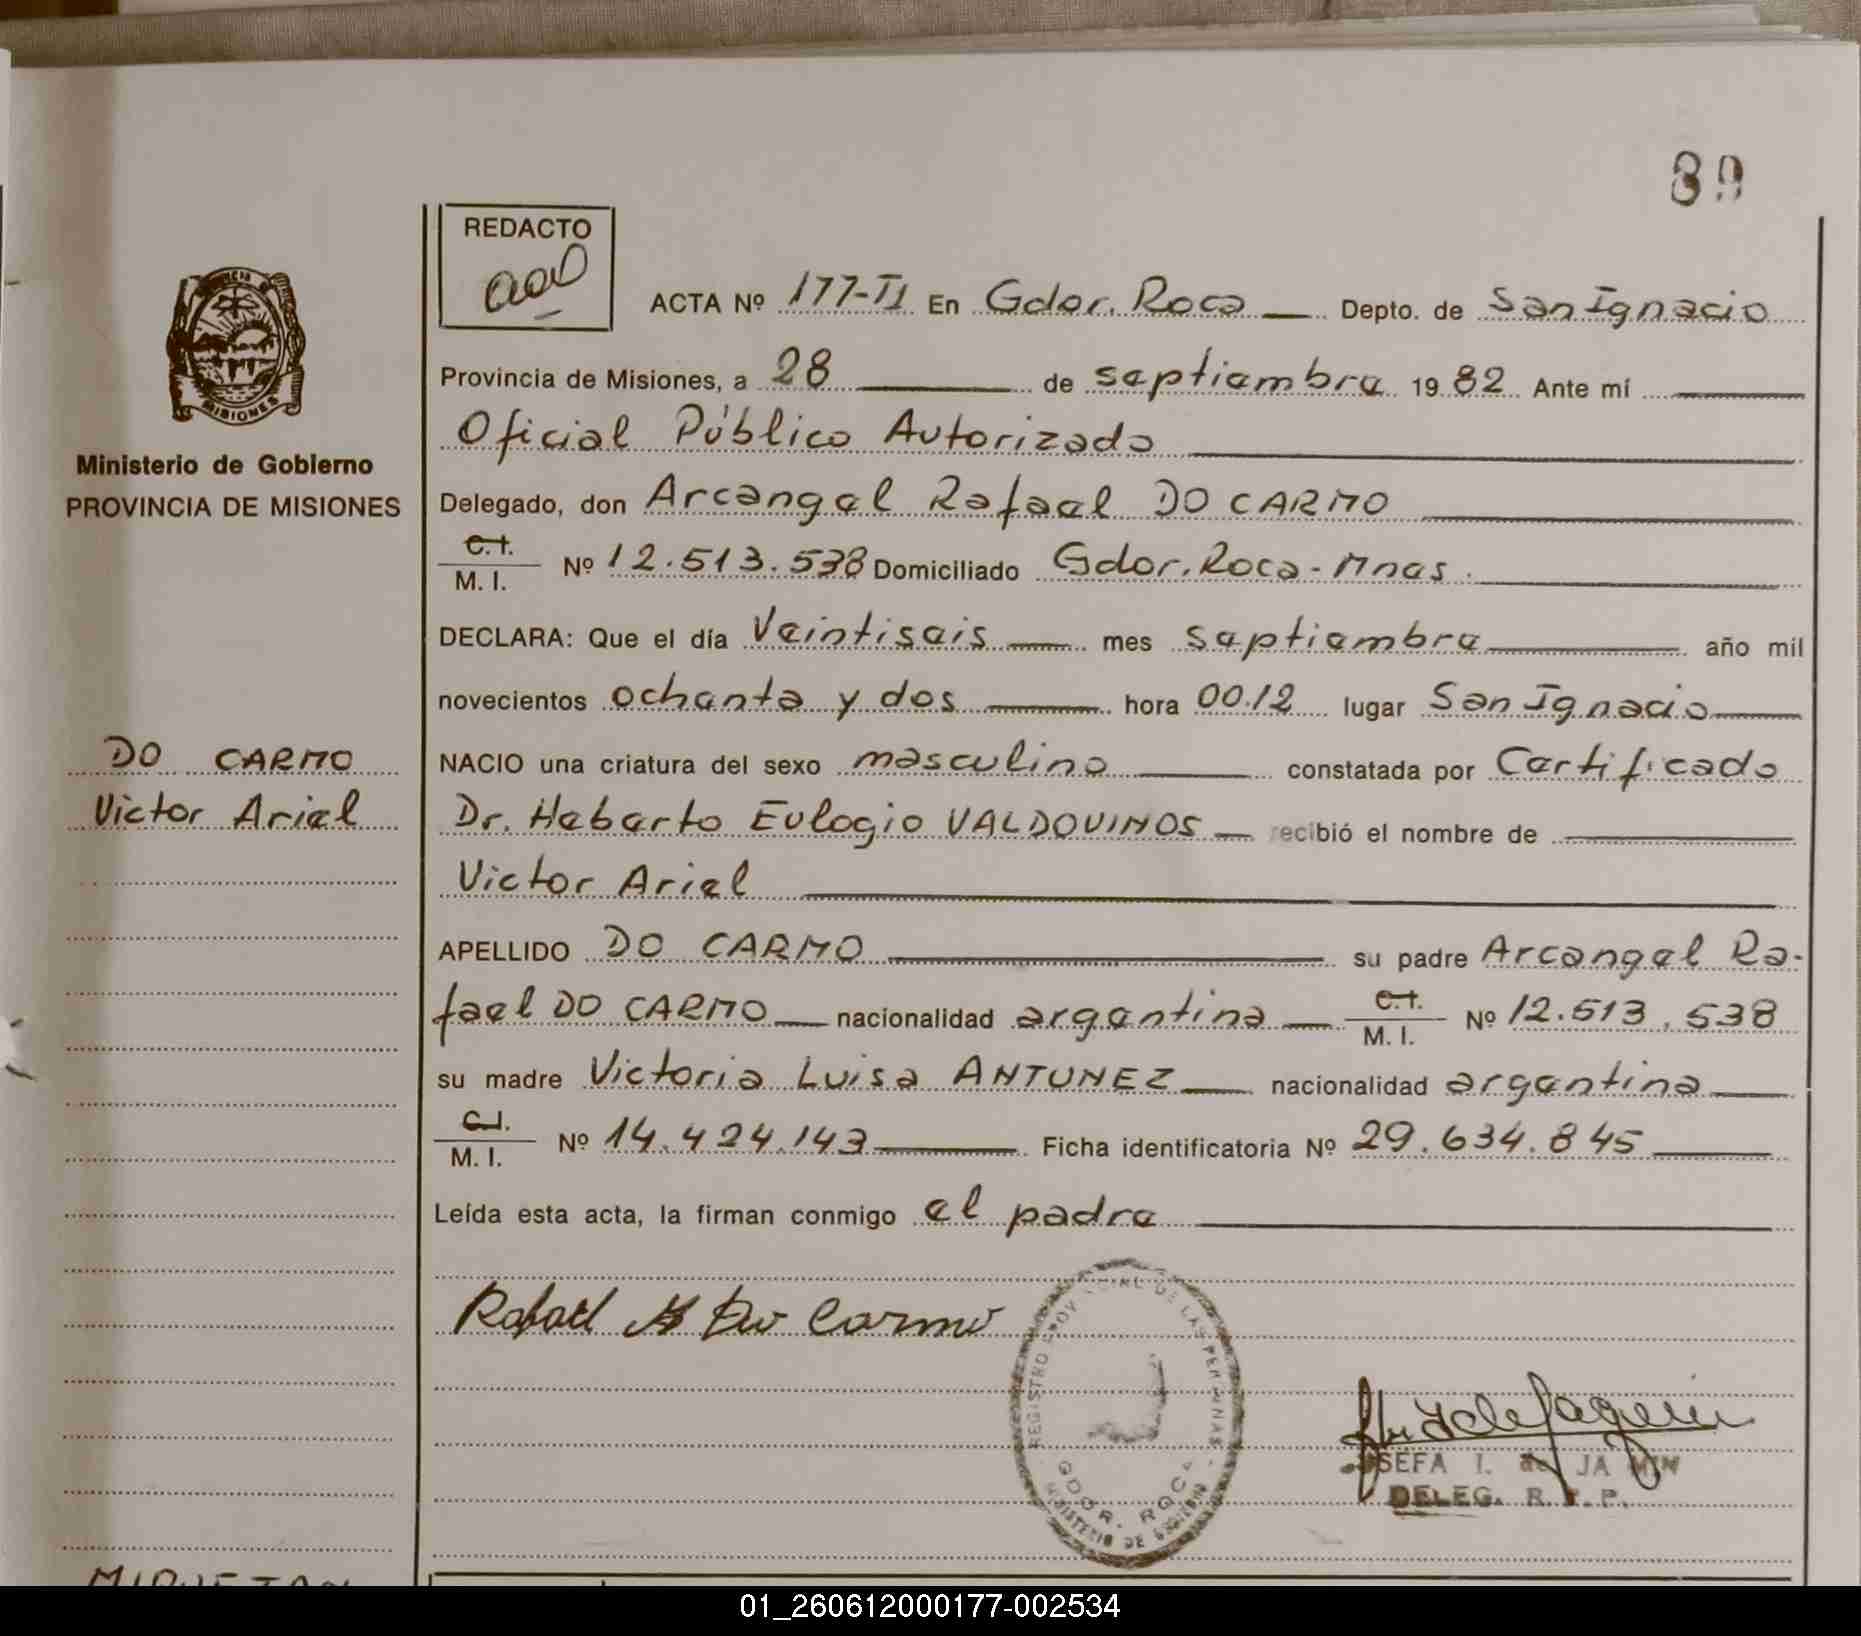 89
REDACTO
ACTA Nº 177-II En Gdor. Roca Depto. de San Ignacio
MISIONES
Provincia de Misiones, a 28 de septiembre 1982 Ante mí
Oficial Público Autorizado
Ministerio de Gobierno
PROVINCIA DE MISIONES
Delegado, don Arcangel Rafael DO CARMO
C.I.
M. I. Nº 12.513.538 Domiciliado Gdor. Roca - Mnes.
DECLARA: Que el día Veintiseis mes septiembre año mil
novecientos ochenta y dos hora 00.12 lugar San Ignacio
DO CARMO
Victor Ariel
NACIO una criatura del sexo masculino constatada por Certificado
Dr. Heberto Eulogio VALDOVINOS recibió el nombre de
Victor Ariel
APELLIDO DO CARMO su padre Arcangel Ra-
fael DO CARMO nacionalidad argentina C.I. M. I. Nº 12.513.538
su madre Victoria Luisa ANTUNEZ nacionalidad argentina
C.I.
M. I. Nº 14.424.143 Ficha identificatoria Nº 29.634.845
Leída esta acta, la firman conmigo el padre
Rafael A Do Carmo
REGISTRO PROVINCIAL DE LAS PERSONAS
GDOR. ROCA
MINISTERIO DE GOBIERNO
JOSEFA I. de
DELEG. R. P. P.
01_260612000177-002534